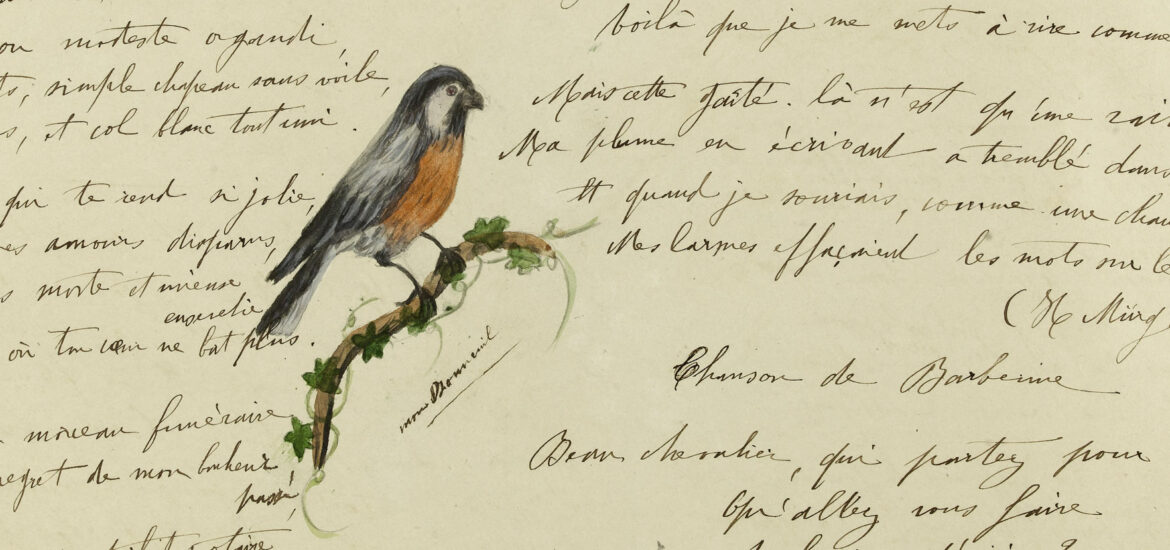 modeste organdi,
simple chapeau sans voile,
et col blanc tout uni.
qui te rend si jolie,
amours disparus,
morte et mieuse
ensevelie
où ton cœur ne bat plus.
morceau funéraire
regret de mon bonheur
passé,
voilà que je me mets à rire comme
Mais cette gaîté. là n'est qu'une rail
Ma plume en écrivant a tremblé dans
Et quand je souriais, comme une chau
Mes larmes effaçaient les mots sur le
(H Mürg
Chanson de Barberine
Beau chevalier, qui partez pour
Qu'allez vous faire